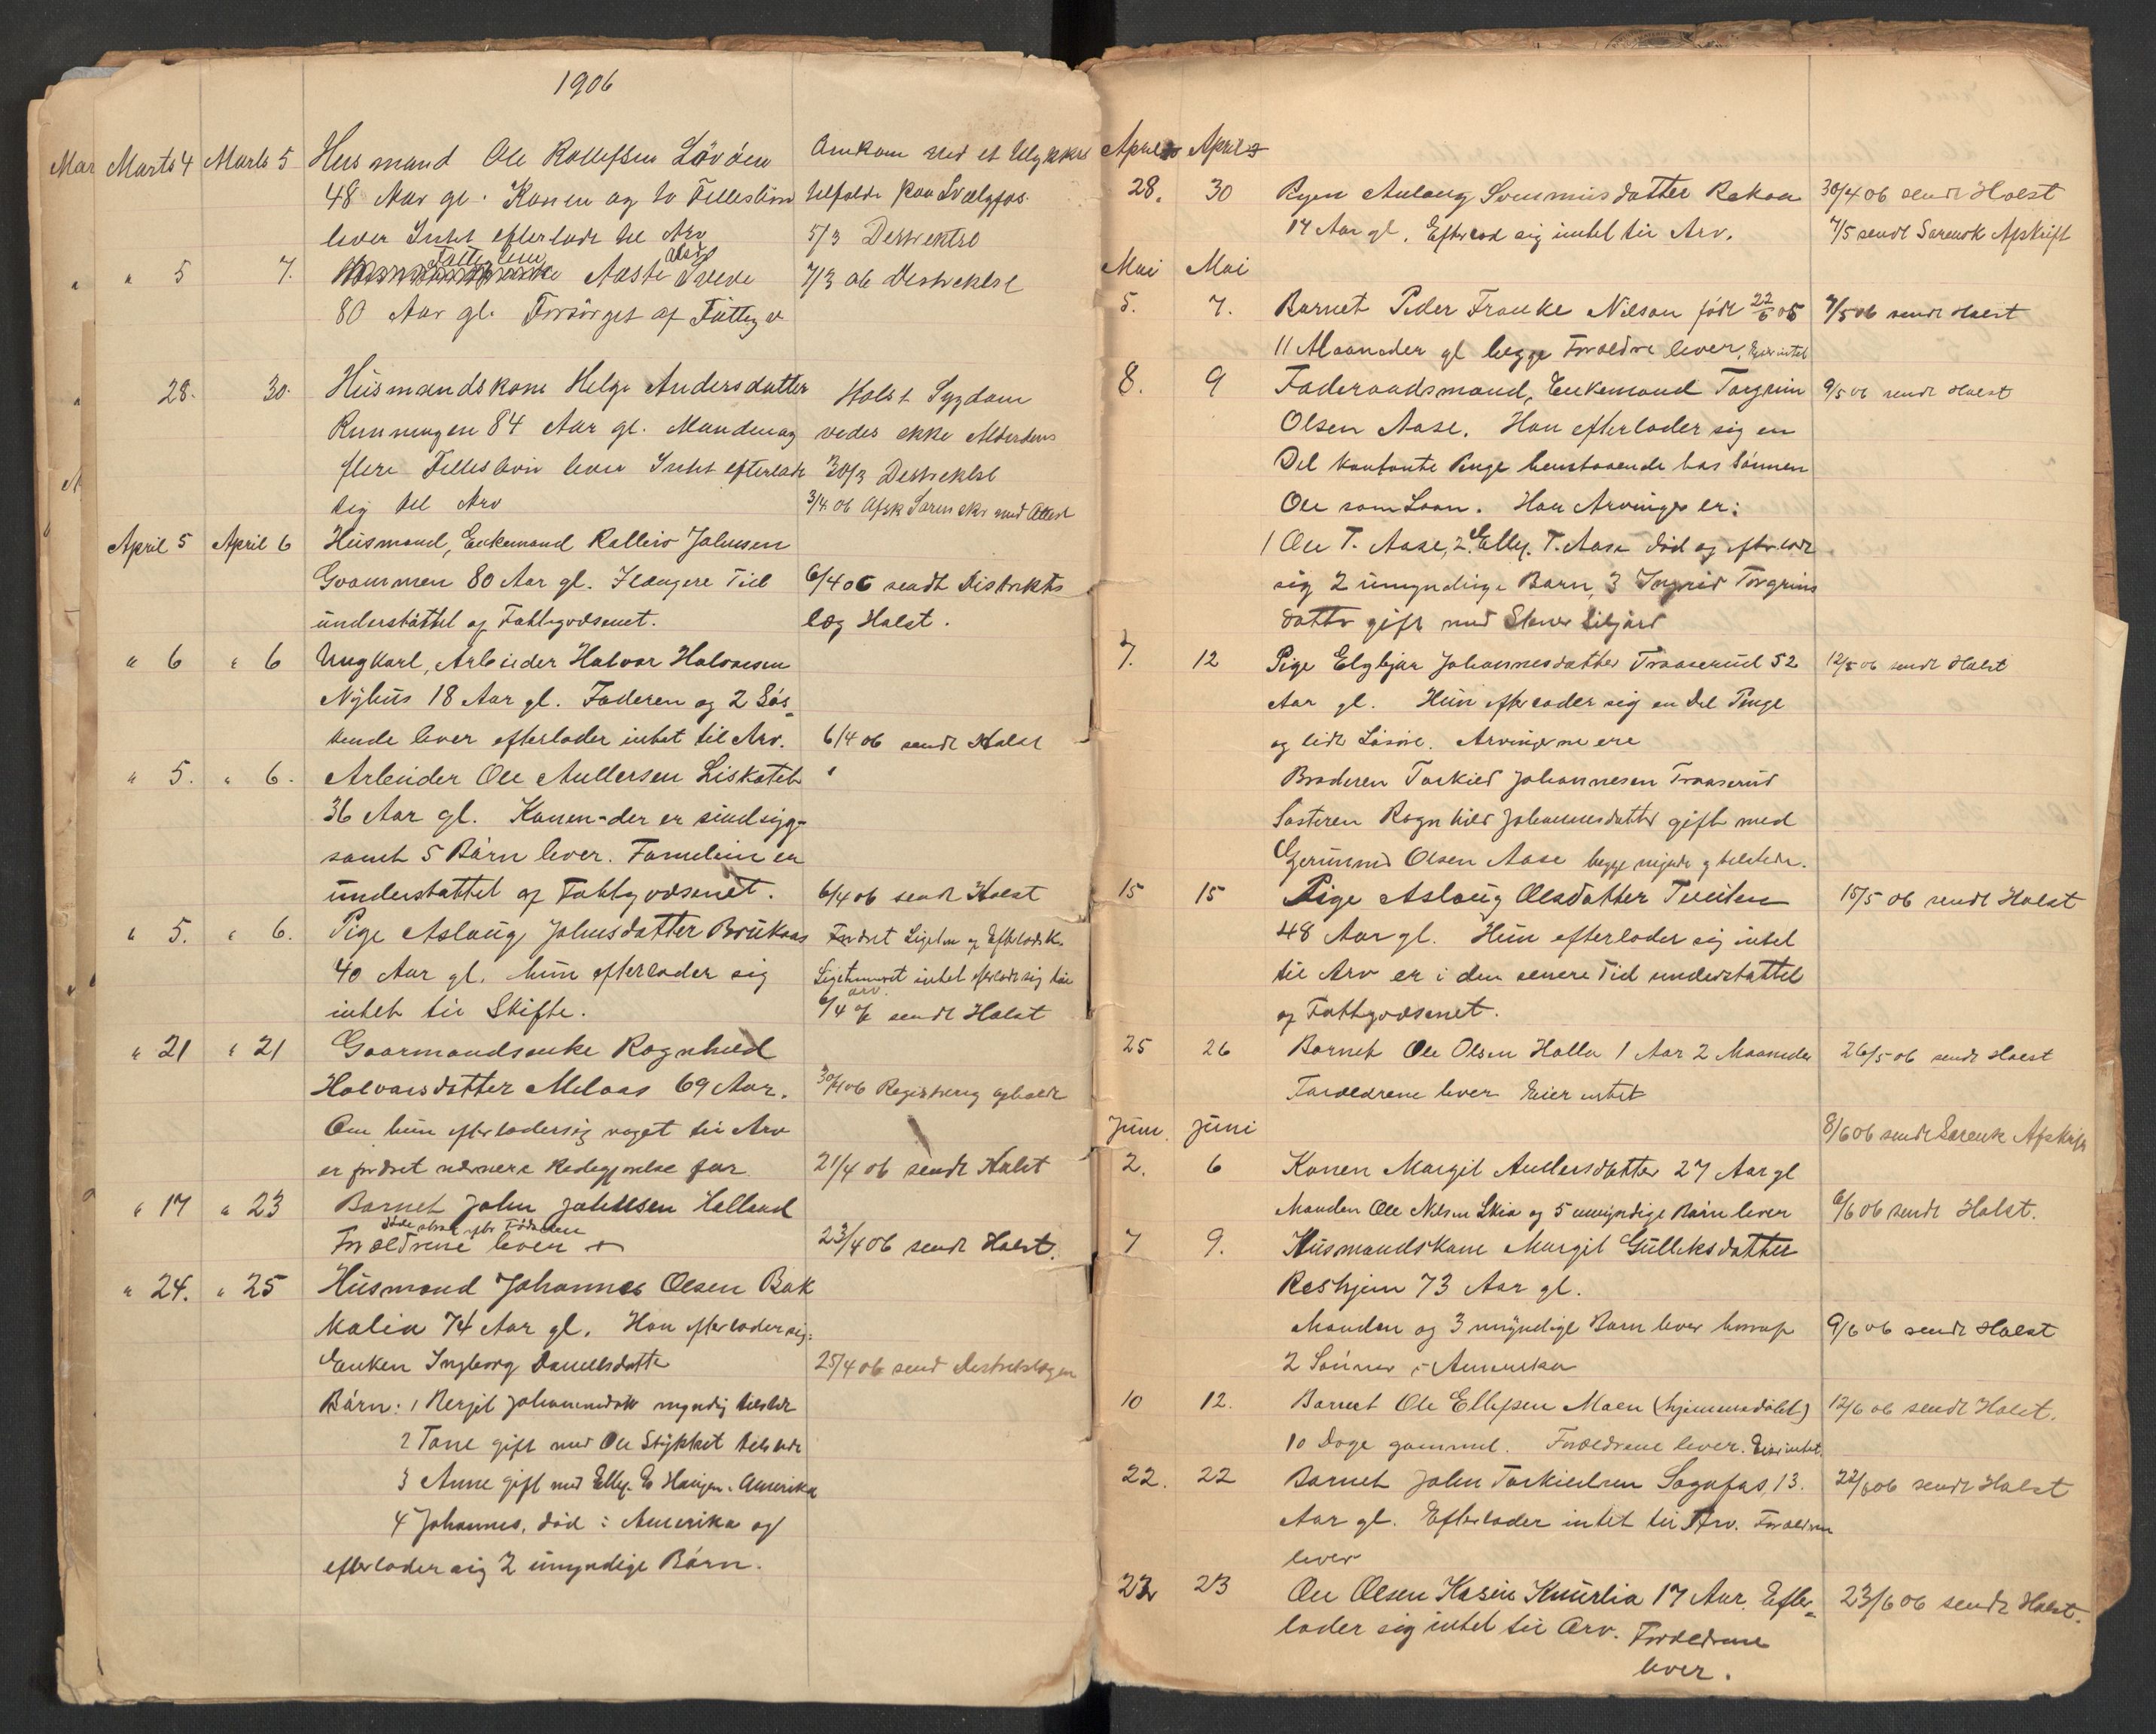 1906
Marts 4 Marts 5 Husmand Ole Rollefsen Lövåen Omkom ved et Ulykkes
48 Aar gl. Konen og to Fellesbörn tilfælde paa Svælgfos.
lever Intet efterladt til Arv 5/3 Destrektsl
" 5 7. Fattiglem Aaste Svede 7/3 06 Destrektsl
80 Aar gl. Forsörget af Fattigv
28. 30. Husmandskone Helge Andersdatter Holst Sygdom
Runningen 84 Aar gl. Manden og vides ikke Alderdoms
flere Fellesbörn lever Intet efterladt 30/3 Destrektsl
sig til Arv 3/4 06 Afsk Sorenskr med Attest
April 5 April 6 Husmand, Enkemand Rolleiv Johnsen
Grommen 80 Aar gl. I længere Tid 6/4 06 sendt Distrikts
understöttet af Fattigvæsenet. læg Holst.
" 6 " 6 Ungkarl, Arbeider Halvor Halvorsen
Nyhus 18 Aar gl. Faderen og 2 Sös-
kende lever efterlader intet til Arv. 6/4 06 sendt Holst
" 5. " 6. Arbeider Ole Andersen Liskoteh "
36 Aar gl. Konen - der er sindsyg -
samt 5 Börn lever. Familien er
understöttet af Fattigvæsenet. 6/4 06 sendt Holst
" 5. " 6. Pige Aslaug Johnsdatter Brukaas
40 Aar gl. hun efterlader sig intet efterladt sig til
arv.
intet til Skifte. 6/4 06 sendt Holst
" 21 " 21 Gaarmandsenke Ragnhild
Halvorsdatter Melaas 69 Aar. 30/4 06 Registrering afholdt
Om hun efterlader sig noget til Arv
er fordret nærmere Redegjörelse for 21/4 06 sendt Holst
" 17 " 23 Barnet John Johnsen Holland
döde strax efter Födselen
Forældrene lever 23/4 06 sendt Holst.
" 24. " 25 Husmand Johannes Olsen Bak
Kalia 74 Aar gl. Han efterlader sig:
Enken Ingborg Danielsdatter 25/4 06 send Destrektslægen
Börn: 1 Bergit Johannesdatt myndig tilstede
2 Tone gift med Ole Stykket tilstede
3 Anne gift med Ellef. E Haugen i Amerika
4 Johannes, död i Amerika og
efterlader sig 2 umyndige Börn.
April April
28. 30 Pigen Aslaug Sveinungsdatter Bakaa 30/4 06 sendt Holst
17 Aar gl. Efterlod sig intet til Arv. 7/5 sendt Sorensk Afskrift
Mai Mai
5. 7. Barnet Peder Franke Nilsen födt 22/6 05 7/5 06 sendt Holst
11 Maaneder gl begge Forældre lever, Eier intet
8. 9 Föderaadsmand, Enkemand Torgrim 9/5 06 sendt Holst
Olsen Aase. Han efterlader sig en
Del kontante Penge henstaaende hos Sönnen
Ole som Laan. Hans Arvinger er:
1 Ole T. Aase, 2. Ellef. T. Aase död og efterladt
sig 2 umyndige Barn, 3 Ingrid Torgrims
datter gift med Stener Liljord
7. 12 Pige Elgbjør Johannesdatter Traaserud 52 12/5 06 sendt Holst
Aar gl. Hun efterlader sig en Del Penge
og lidt Lösöre. Arvingerne ere
Broderen Torkild Johannesen Traaserud
Sösteren Ragnhild Johannesdatter gift med
Gjermund Olsen Aase begge myndi og tilstede.
15 15 Pige Aslaug Olsdatter Tveiten 15/5 06 sendt Holst
48 Aar gl. Hun efterlader sig intet
til Arv er i den senere Tid understöttet
af Fattigvæsenet.
25 26 Barnet Ole Olsen Holla 1 Aar 2 Maaneder 26/5 06 sendt Holst
Forældrene lever Eier intet
Juni Juni 8/6 06 sendt Sorensk Afskrift
2. 6 Konen Margit Andersdatter 27 Aar gl
Manden Ole Nilsen Skia og 5 umyndige Börn lever 6/6 06 sendt Holst.
7 9. Husmandskone Margit Gulliksdatter
Reshjem 73 Aar gl.
Manden og 3 myndige Barn lever hvoraf 9/6 06 sendt Holst
2 Sönner i Amerika
10 12. Barnet Ole Ellefsen Moen (hjemmedöbt) 12/6 06 sendt Holst.
10 Dage gammel. Forældrene lever. Eier intet.
22. 22 Barnet John Torkildsen Sagafos, 13. 22/6 06 sendt Holst
Aar gl. Efterlader intet til Arv. Forældrene
lever
22 23 Ole Olsen Kasin Knurlia 17 Aar. Efter- 23/6 06 sendt Holst.
lader sig intet til Arv. Forældrene
lever.